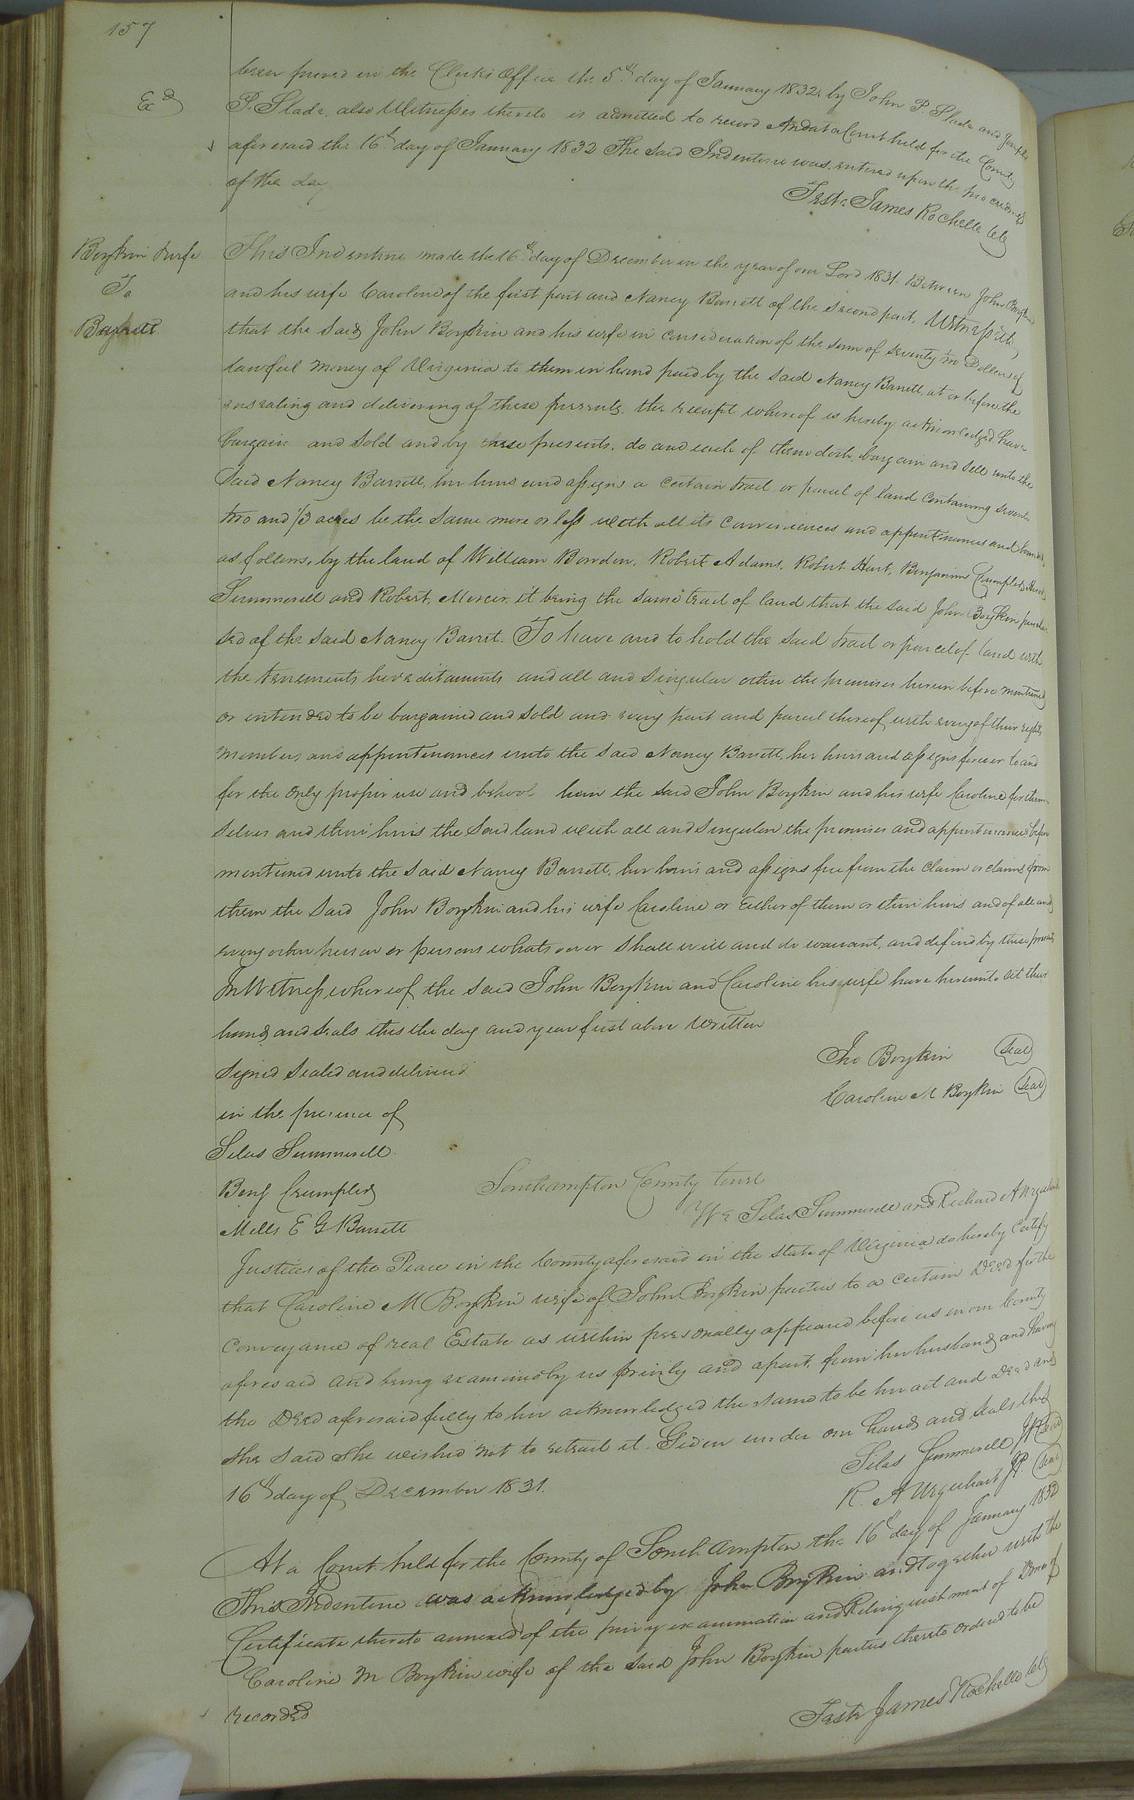 157
been proved in the Clerks Office the 5th day of January 1832 by John P. Slade and Joseph
Exd
P. Slade, also Witnesses thereto is admitted to record And at a Court held for the County
aforesaid the 16th day of January 1832 The Said Indenture was entered upon the proceedings
of the day
Test. James Rochelle Clk
Boykin & wife
To
Barrett
This Indenture made the 16th day of December in the year of our Lord 1831. Between John Boykin
and his wife Caroline of the first part and Nancy Barrett of the second part, Witnesseth,
that the said John Boykin and his wife in consideration of the sum of seventy Dollars of
lawful money of Virginia to them in hand paid by the said Nancy Barrett, at or before the
ensealing and delivering of these presents, the receipt whereof is hereby acknowledged have
bargain and sold and by these presents, do and each of them doth bargain and sell unto the
Said Nancy Barrett, her heirs and assigns a certain tract or parcel of land containing seventy
two and 1/3 acres be the same more or less with all its conveniences and appurtenances and bounded
as follows, by the land of William Bowden, Robert Adams, Robert Hart, Benjamin Crumpler,
Summerell and Robert Mercer, it being the same tract of land that the said John Boykin purcha
sed of the said Nancy Barret. To have and to hold the said tract or parcel of land with
the tenements hereditaments and all and singular other the premises herein before mentioned
or intended to be bargained and sold and every part and parcel thereof with every of their rights
members and appurtenances unto the said Nancy Barrett, her heirs and assigns forever to and
for the only proper use and behoof her the said John Boykin and his wife Caroline for them
selves and their heirs the said land with all and singular the premises and appurtenances before
mentioned unto the said Nancy Barrett, her heirs and assigns free from the claim or claims from
them the said John Boykin and his wife Caroline or either of them or their heirs and of all and
every other person or persons whatsoever shall will and do warrant, and defend by these presents
In Witness whereof the said John Boykin and Caroline his wife have hereunto set their
hands and seals this the day and year first above Written
Jno Boykin Seal
Signed Sealed and delivered
Caroline M Boykin Seal
in the presence of
Silas Summerell
Benj Crumpler
Mills E G Barrett
Southampton County towit
We Silas Summerell and Richard A Urquhart
Justices of the Peace in the County aforesaid in the State of Virginia do hereby Certify
that Caroline M Boykin wife of John Boykin parties to a certain Deed for the
conveyance of real Estate as within personally appeared before us in our County
aforesaid and being examined by us privily and apart from her husband, and having
the Deed aforesaid fully to her acknowledged the same to be her act and Deed and
she said she wished not to retract it. Given under our hands and seals this
16th day of December 1831.
Silas Summerell JP Seal
R. A Urquhart JP Seal
At a Court held for the County of Southampton the 16th day of January 1832
This Indenture was acknowledged by John Boykin and together with the
Certificate thereto annexed of the privy examination and Relinquishment of Dower of
Caroline M Boykin wife of the said John Boykin parties thereto ordered to be
recorded
Teste James Rochelle Clk